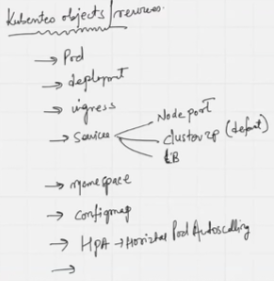 Kubentes objects/resources.
→ Pod
→ deployment
→ ingress
→ Services
Node port
clusterip (default)
LB
→ namespace
→ configmap
→ HPA → Horizontal Pod Autoscalling
→